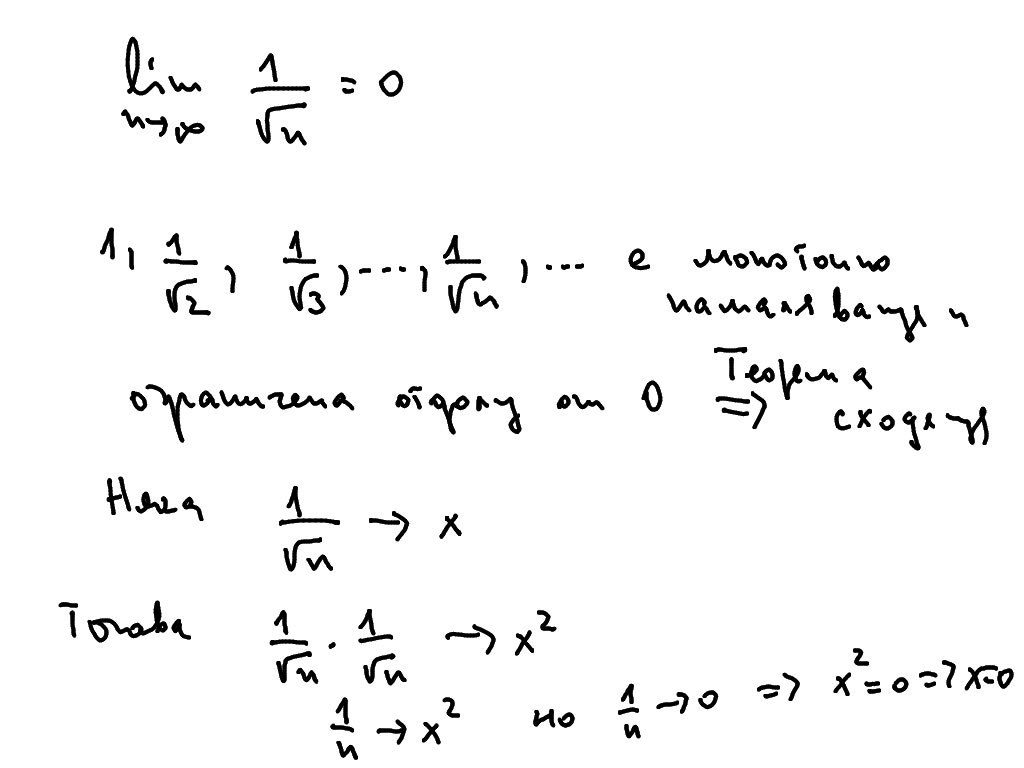 lim n→∞ 1/√n = 0
1, 1/√2, 1/√3, ..., 1/√n, ... е монотонно
намаляваща и
ограничена отдолу от 0 ⇒ Теорема
сходяща
Нека 1/√n → x
Тогава 1/√n · 1/√n → x²
1/n → x² но 1/n → 0 ⇒ x² = 0 ⇒ x=0